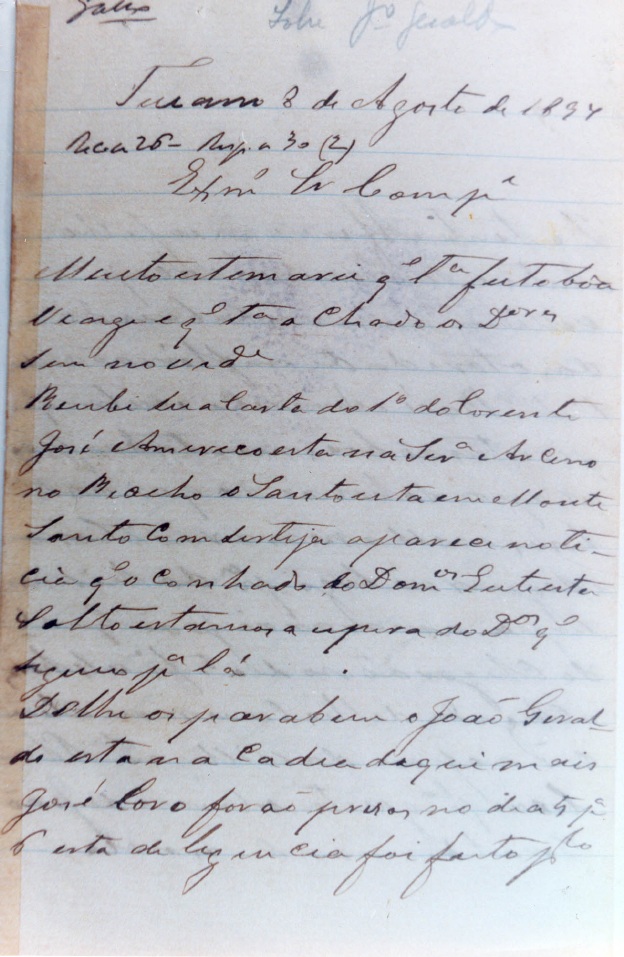 Sobre Jº Geraldo
Tucano 8 de Agosto de 1894
Rc a 26 - Resp a 30 (2)
Exmº Sr Compe
Muito estemarei qe Va fizeçe bôa
viage e qe Va achado os Dores
sem novide
Recebi sua Carta do 1º do Corente
José Americo esta na Serª Arceno
no Riacho o Santo esta em Monte
Santo Com certeja aparece noti-
cia qe o Conhado do Domos
Solto estamos a espera do Dor qe
seguio pª lá
Dolhe os parabem o João Geral-
do esta na Cadea daqui mais
José Covo foraõ presos no dia 5 pª
6 esta deligencia foi feito plo